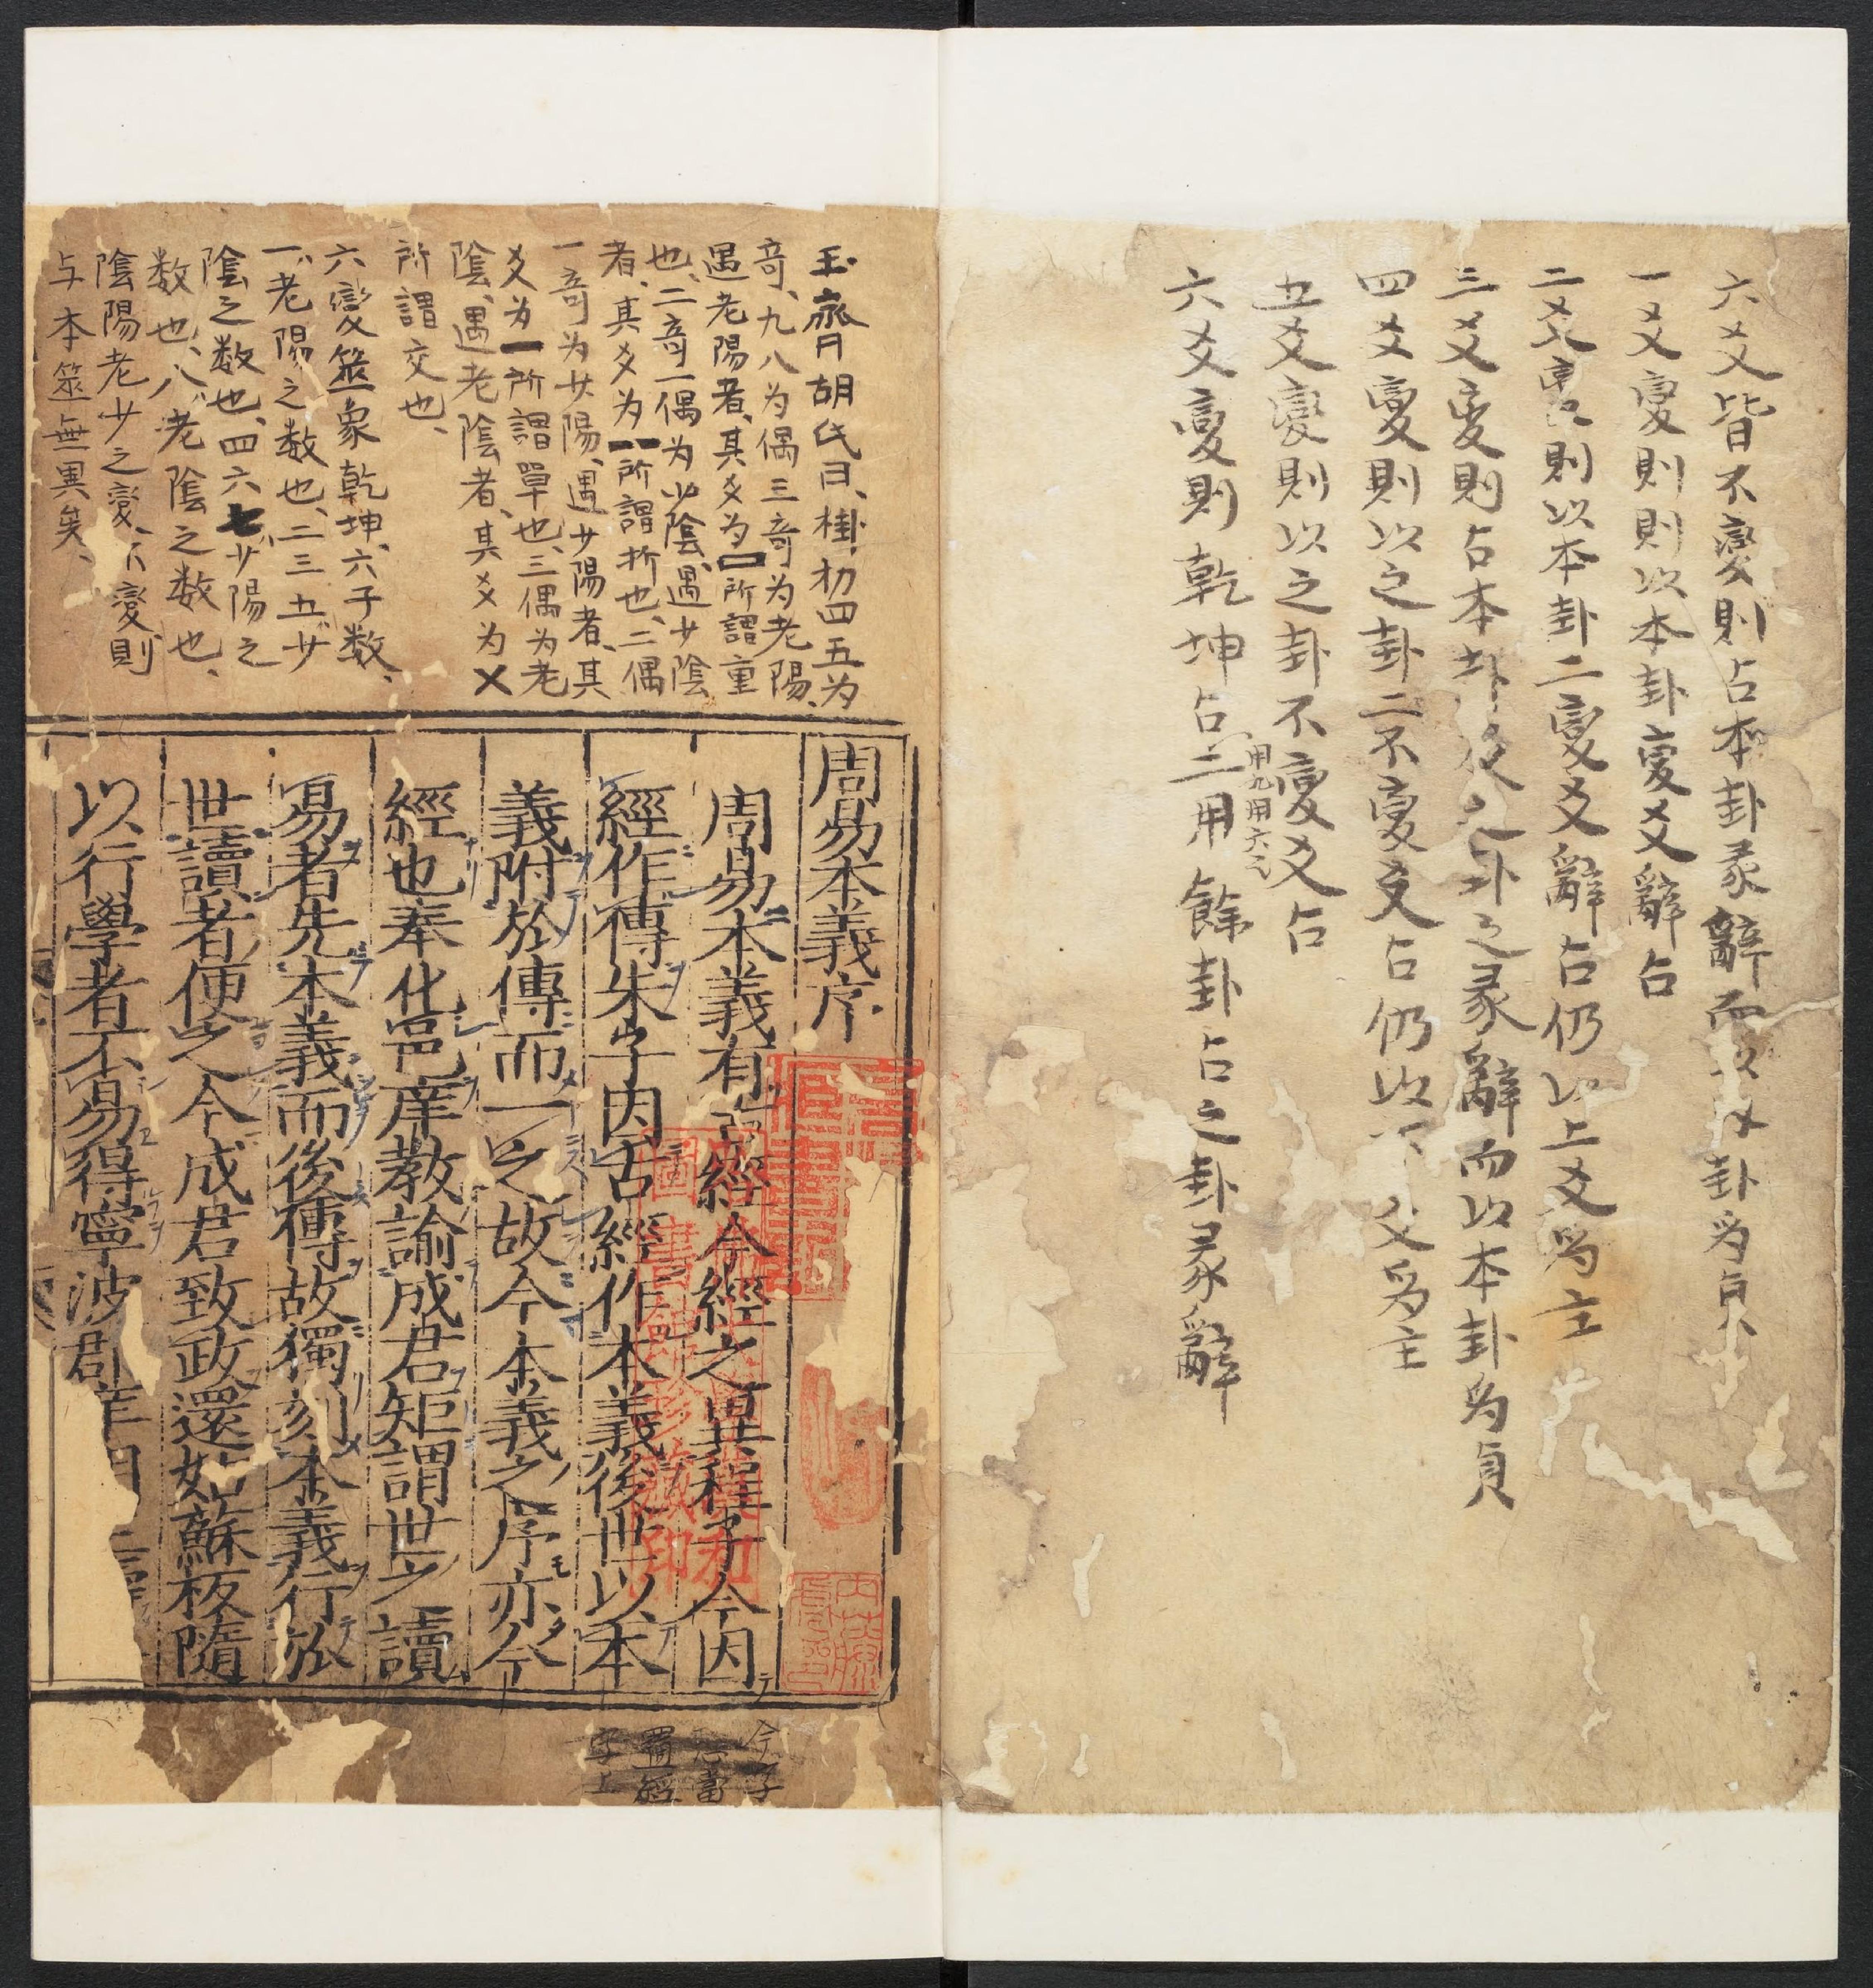 六爻皆不變則占本卦彖辭而以外卦為貞
一爻變則則以本卦變爻辭占
二爻變則以本卦二變爻辭占仍以上爻為主
三爻變則占本卦及之卦之彖辭而以本卦為貞
四爻變則以之卦二不變爻占仍以下爻為主
五爻變則以之卦不變爻占
六爻變則乾坤占二用餘卦占之卦彖辭
用九用六
玉齋胡氏曰、掛扐四五為
奇、九八為偶三奇為老陽、
遇老陽者、其爻為囗所謂重
也、二奇一偶為少陰、遇少陰
者、其爻為一所謂拆也、二偶
一奇為少陽、遇少陽者、其
爻為一所謂單也、三偶為老
陰、遇老陰者、其爻為乂
所謂交也、
六變筮象乾坤、六子数、
一、老陽之数也、二三五、少
陰之数也、四六七、少陽之
数也、八、老陰之数也、
陰陽老少之變、不變則
与本筮無異矣、
周易本義序
周易本義有古經今經之異程子今因
經作傳朱子因古經作本義後世以本
義附於傳而一之故今本義之序亦今
經也奉化邑庠教諭成君矩謂世之讀
易者先本義而後傳故獨刻本義行於
世讀者便之今成君致政還姑蘇板隨
以行學者不易得寧波郡庠
今字
當
置經
字上